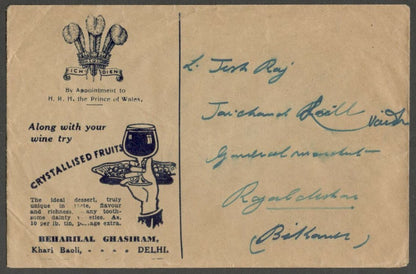 ICH DIEN
By Appointment to
H. R. H. the Prince of Wales.
Along with your
wine try
CRYSTALLISED FRUITS
The ideal dessert, truly
unique in taste, flavour
and richness. any tooth-
some dainty As.
per lb. tin, extra.
BEHARILAL GHASIRAM,
Khari Baoli, - - - - DELHI.
L. Tesh Raj
Jaichand
Rajaldesar
(Bikaner)